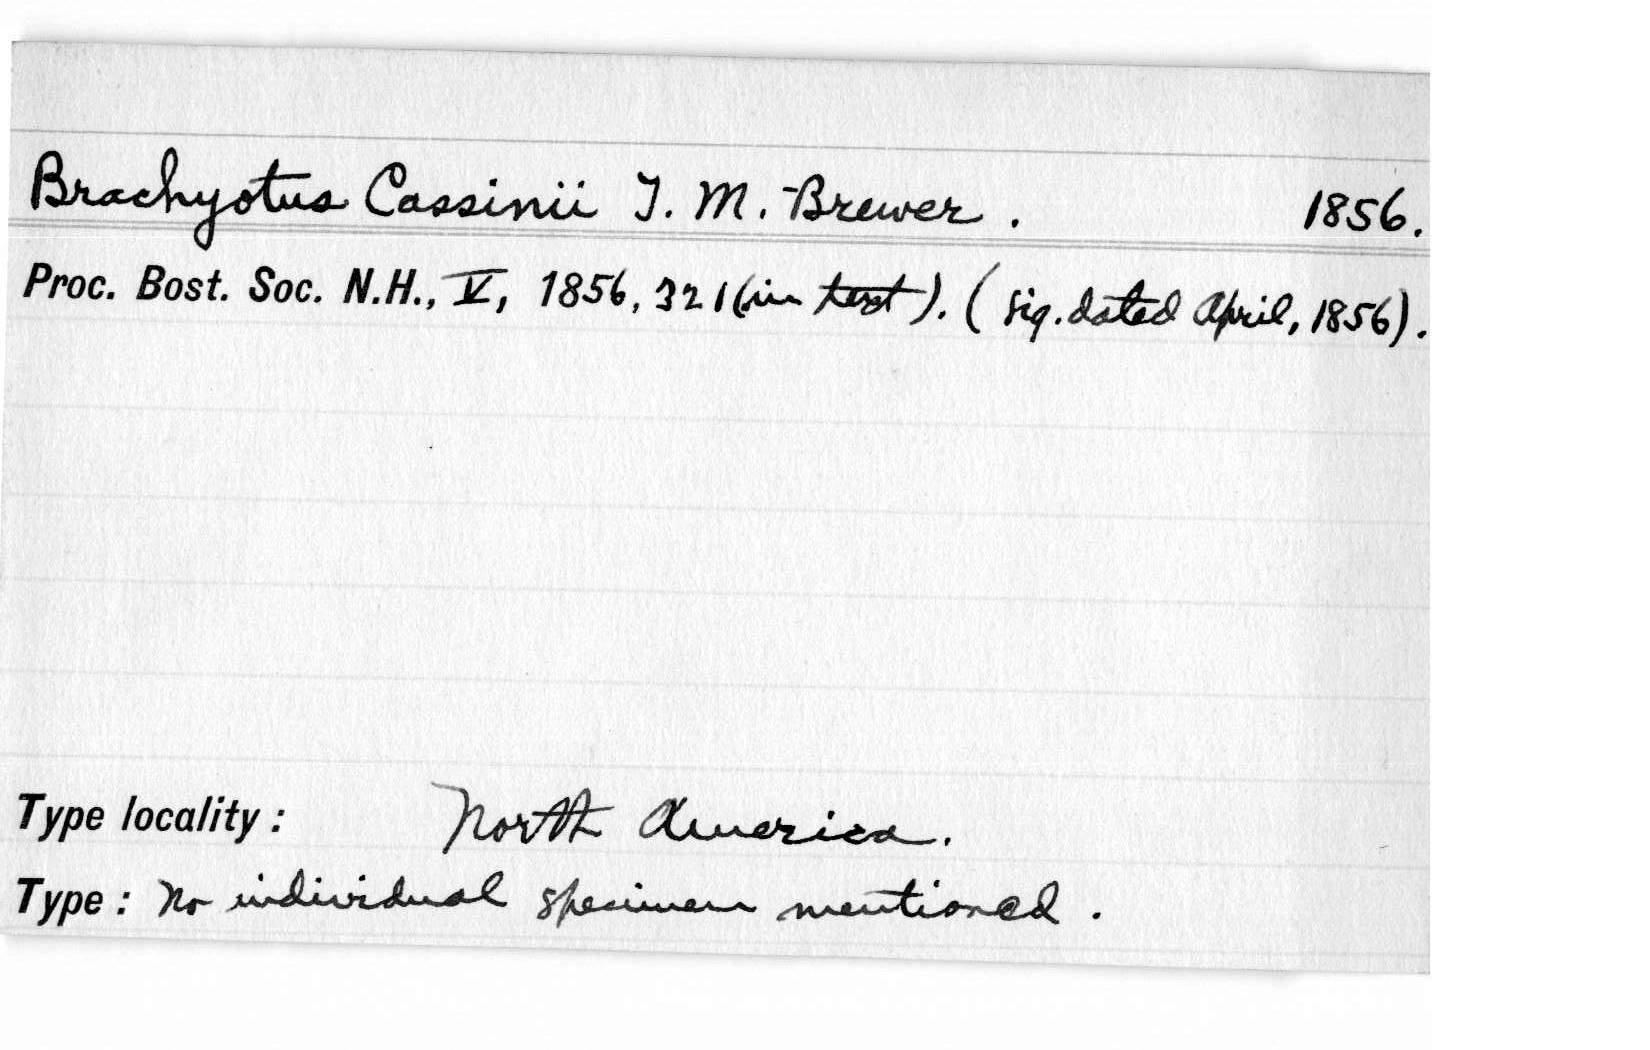 Brachyotus Cassinii T. M. Brewer. 1856.
Proc. Bost. Soc. N.H., V, 1856, 321 (in text). (Sig. dated April, 1856).
Type locality: North America.
Type: No individual specimen mentioned.